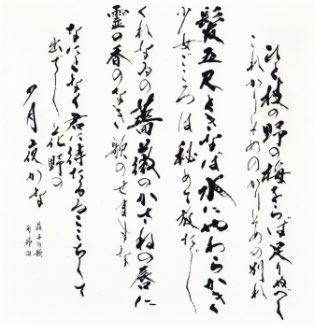 ひと枝の野の梅をらば足りぬべし
これかりそめのかりそめの別れ
髪五尺ときなば水にやわらかき
少女ごころは秘めて放たじ
くれなゐの薔薇のかさねの唇に
霊の香のなき歌のせますな
なにとなく君に待たるるここちして
出でし花野の
夕月夜かな
晶子の歌